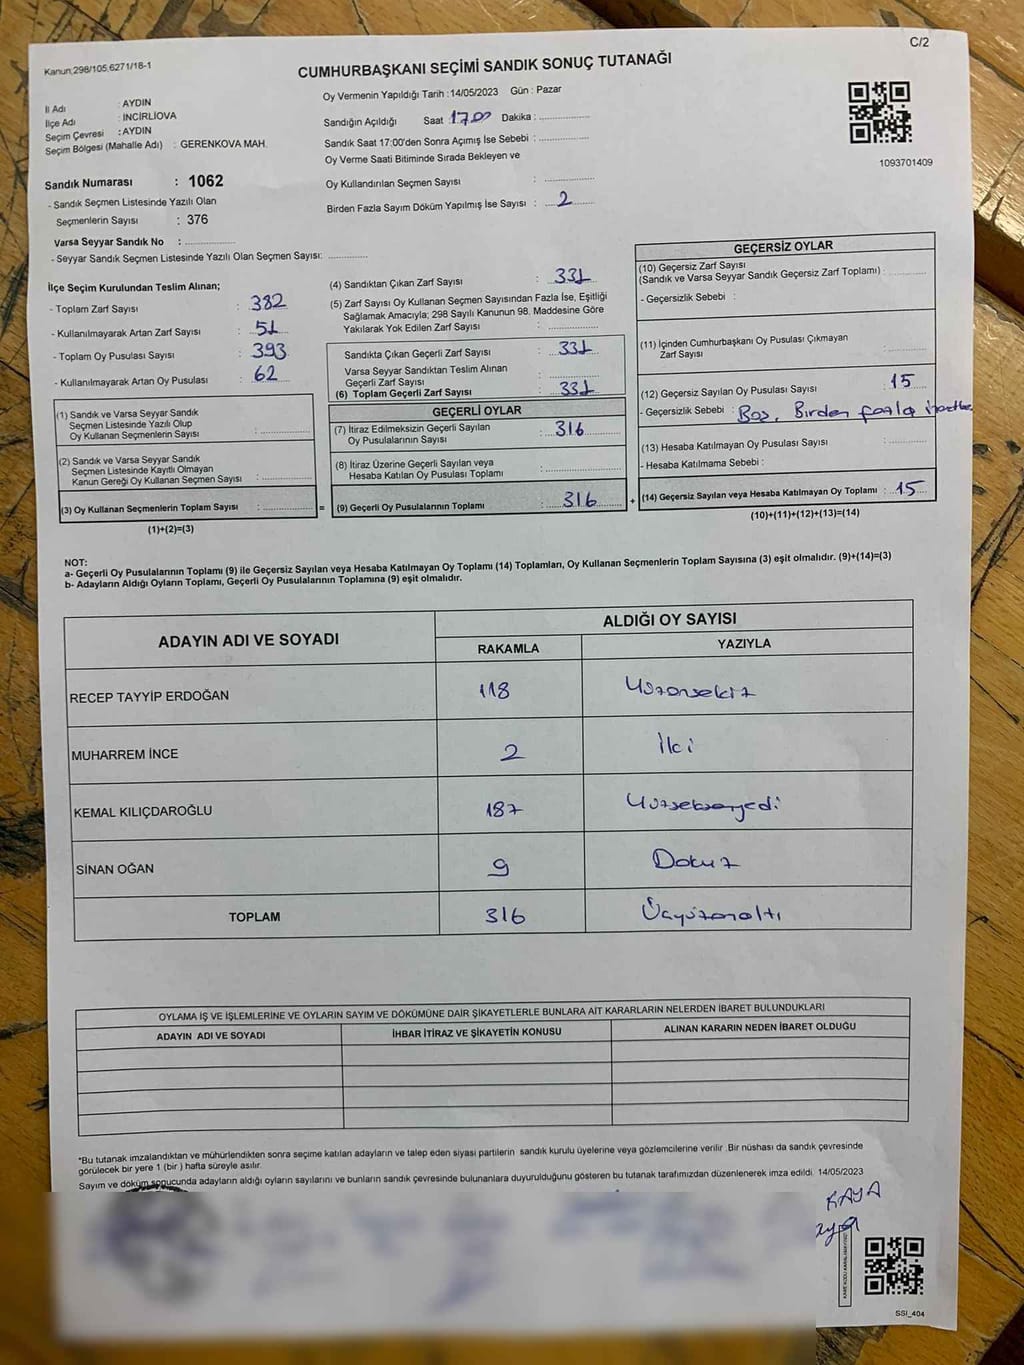 C/2
Kanun,298/105,6271/18-1
CUMHURBAŞKANI SEÇİMİ SANDIK SONUÇ TUTANAĞI
İl Adı : AYDIN
İlçe Adı : İNCİRLİOVA
Seçim Çevresi : AYDIN
Seçim Bölgesi (Mahalle Adı) : GERENKOVA MAH.
Sandık Numarası : 1062
- Sandık Seçmen Listesinde Yazılı Olan
Seçmenlerin Sayısı : 376
Varsa Seyyar Sandık No : ................
- Seyyar Sandık Seçmen Listesinde Yazılı Olan Seçmen Sayısı: ............
Oy Vermenin Yapıldığı Tarih : 14/05/2023 Gün : Pazar
Sandığın Açıldığı Saat : 17.00 Dakika : ................
Sandık Saat 17:00'den Sonra Açımış İse Sebebi : ................
Oy Verme Saati Bitiminde Sırada Bekleyen ve
Oy Kullandırılan Seçmen Sayısı : ................
Birden Fazla Sayım Döküm Yapılmış İse Sayısı : 2
1093701409
İlçe Seçim Kurulundan Teslim Alınan;
- Toplam Zarf Sayısı : 382
- Kullanılmayarak Artan Zarf Sayısı : 51
- Toplam Oy Pusulası Sayısı : 393
- Kullanılmayarak Artan Oy Pusulası : 62
(1) Sandık ve Varsa Seyyar Sandık
Seçmen Listesinde Yazılı Olup
Oy Kullanan Seçmenlerin Sayısı : ............
(2) Sandık ve Varsa Seyyar Sandık
Seçmen Listesinde Kayıtlı Olmayan
Kanun Gereği Oy Kullanan Seçmen Sayısı : ............
(3) Oy Kullanan Seçmenlerin Toplam Sayısı : ............ =
(1)+(2)=(3)
(4) Sandıktan Çıkan Zarf Sayısı : 331
(5) Zarf Sayısı Oy Kullanan Seçmen Sayısından Fazla İse, Eşitliği
Sağlamak Amacıyla; 298 Sayılı Kanunun 98. Maddesine Göre
Yakılarak Yok Edilen Zarf Sayısı : ............
Sandıkta Çıkan Geçerli Zarf Sayısı : 331
Varsa Seyyar Sandıktan Teslim Alınan
Geçerli Zarf Sayısı : ............
(6) Toplam Geçerli Zarf Sayısı : 331
GEÇERLİ OYLAR
(7) İtiraz Edilmeksizin Geçerli Sayılan
Oy Pusulalarının Sayısı : 316
(8) İtiraz Üzerine Geçerli Sayılan veya
Hesaba Katılan Oy Pusulası Toplamı : ............
(9) Geçerli Oy Pusulalarının Toplamı : 316 +
GEÇERSİZ OYLAR
(10) Geçersiz Zarf Sayısı
(Sandık ve Varsa Seyyar Sandık Geçersiz Zarf Toplamı) : ............
- Geçersizlik Sebebi :
(11) İçinden Cumhurbaşkanı Oy Pusulası Çıkmayan
Zarf Sayısı : ............
(12) Geçersiz Sayılan Oy Pusulası Sayısı : 15
- Geçersizlik Sebebi : Boş, Birden fazla
(13) Hesaba Katılmayan Oy Pusulası Sayısı : ............
- Hesaba Katılmama Sebebi :
(14) Geçersiz Sayılan veya Hesaba Katılmayan Oy Toplamı : 15
(10)+(11)+(12)+(13)=(14)
NOT:
a- Geçerli Oy Pusulalarının Toplamı (9) ile Geçersiz Sayılan veya Hesaba Katılmayan Oy Toplamı (14) Toplamları, Oy Kullanan Seçmenlerin Toplam Sayısına (3) eşit olmalıdır. (9)+(14)=(3)
b- Adayların Aldığı Oyların Toplamı, Geçerli Oy Pusulalarının Toplamına (9) eşit olmalıdır.
ADAYIN ADI VE SOYADI
ALDIĞI OY SAYISI
RAKAMLA YAZIYLA
RECEP TAYYİP ERDOĞAN 118 Yüzonsekiz
MUHARREM İNCE 2 İki
KEMAL KILIÇDAROĞLU 187 Yüzseksenyedi
SİNAN OĞAN 9 Dokuz
TOPLAM 316 Üçyüzonaltı
OYLAMA İŞ VE İŞLEMLERİNE VE OYLARIN SAYIM VE DÖKÜMÜNE DAİR ŞİKAYETLERLE BUNLARA AİT KARARLARIN NELERDEN İBARET BULUNDUKLARI
ADAYIN ADI VE SOYADI İHBAR İTİRAZ VE ŞİKAYETİN KONUSU ALINAN KARARIN NEDEN İBARET OLDUĞU
*Bu tutanak imzalandıktan ve mühürlendikten sonra seçime katılan adayların ve talep eden siyasi partilerin sandık kurulu üyelerine veya gözlemcilerine verilir. Bir nüshası da sandık çevresinde
görülecek bir yere 1 (bir ) hafta süreyle asılır.
Sayım ve döküm sonucunda adayların aldığı oyların sayılarını ve bunların sandık çevresinde bulunanlara duyurulduğunu gösteren bu tutanak tarafımızdan düzenlenerek imza edildi. 14/05/2023
KAYA
SSI_404